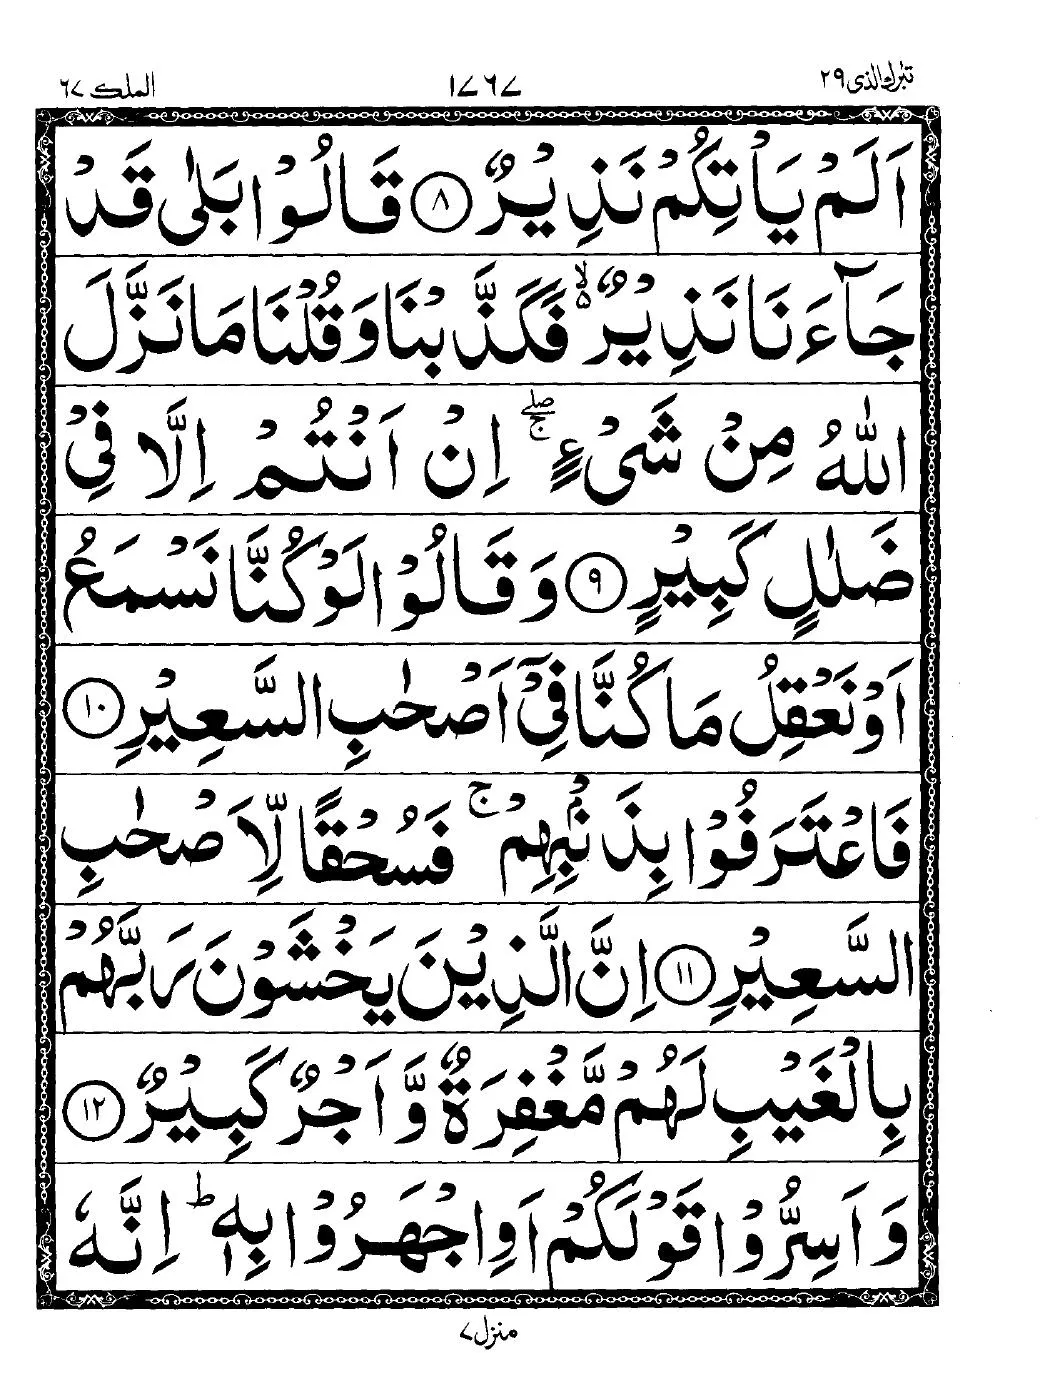 تبٰرك الذی ٢٩
١٧٦٧
الملك ٦٧
اَلَمْ يَاْتِكُمْ نَذِيْرٌ ۝٨ قَالُوْا بَلٰى قَدْ
جَآءَنَا نَذِيْرٌ ۙ۬ فَكَذَّبْنَا وَقُلْنَا مَا نَزَّلَ
اللّٰهُ مِنْ شَىْءٍ ۖۚ اِنْ اَنْتُمْ اِلَّا فِىْ
ضَلٰلٍ كَبِيْرٍ ۝٩ وَقَالُوْا لَوْ كُنَّا نَسْمَعُ
اَوْ نَعْقِلُ مَا كُنَّا فِىْٓ اَصْحٰبِ السَّعِيْرِ ۝١٠
فَاعْتَرَفُوْا بِذَنْۢبِهِمْ ۚ فَسُحْقًا لِّاَصْحٰبِ
السَّعِيْرِ ۝١١ اِنَّ الَّذِيْنَ يَخْشَوْنَ رَبَّهُمْ
بِالْغَيْبِ لَهُمْ مَّغْفِرَةٌ وَّاَجْرٌ كَبِيْرٌ ۝١٢
وَاَسِرُّوْا قَوْلَكُمْ اَوِ اجْهَرُوْا بِهٖ ؕ اِنَّهٗ
منزل ٧